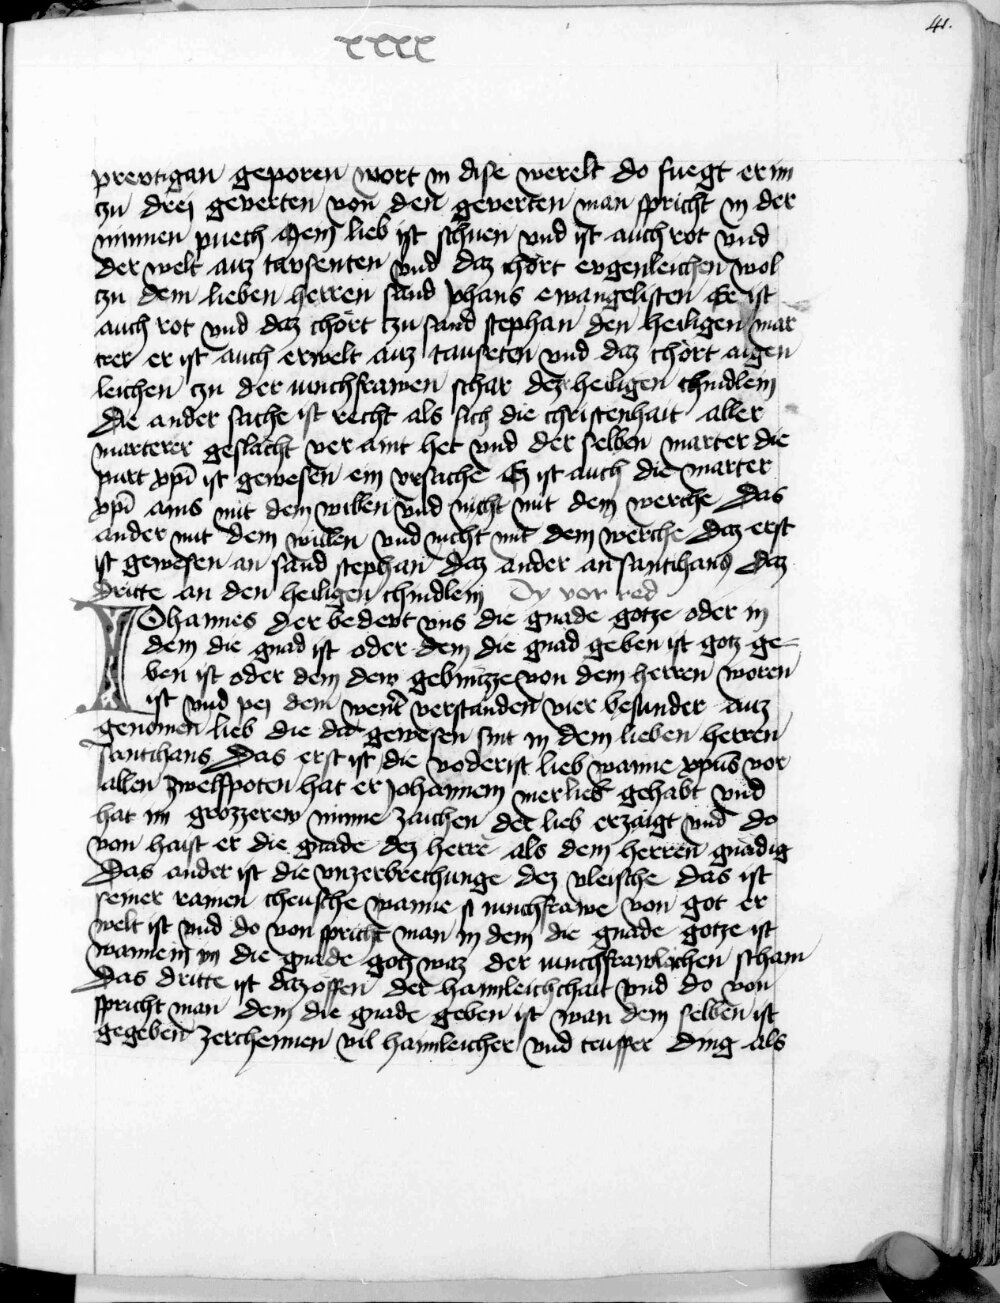 41.
xxxx
prevtigan geporen wort in dise werelt do fuegt er im
czu drei geverten von den geverten man spricht in der
minnen puech Mein lieb ist schuen vnd ist auch rot vnd
der welt auz tavsenten vnd daz chort evgenleichen wol
czu dem lieben herren sand Johans ewangelisten Er ist
auch rot vnd daz chort czu sand stephan den heiligen mar
trer er ist auch erwelt auz tausenten vnd daz chort aigen
leichen czu der iunchfrawen schar dez heiligen chindlein
Die ander sache ist recht als sich die christenhait aller
marterer geslacht ver aint het vnd der selben marter die
purt xpi ist gewesen ein vrsache Ez ist auch die marter
xpi ains mit dem willen vnd nicht mit dem werche Das
ander mit dem willen vnd nicht mit dem werche Daz erst
ist gewesen an sand stephan Daz ander an santihans Daz
dritte an den heiligen chindlein Dy vor red
IOhannes der bedevt vns die gnade gotze oder in
dem die gnad ist oder dem die gnad geben ist gotz ge-
ben ist oder dem dew gebnuzze von dem herren woren
ist vnd pei dem werdent verstanden vier besunder auz
genomen lieb die da gewesen sint in dem lieben herren
santihans Das erst ist die voderist lieb wanne xpus vor
allen zwelfpoten hat er Johannem mer lieb gehabt vnd
hat im grozzerew minne zaichen der lieb erzaigt vnd do
von haist er die gnade dez herre als dem herren gnadig
Das ander ist die vnzerbrechunge dez vleische das ist
seiner rainen cheusche wanne si iunchfrawe von got er
welt ist vnd do von spricht man in dem die gnade gotze ist
wanne in im die gnade gotz waz der iunchfrawleichen scham
Das dritte ist daz offen der haimleichchait vnd do von
spricht man dem die gnade geben ist wan dem selben ist
gegeben zerchennen vil haimleicher vnd teuffer ding als